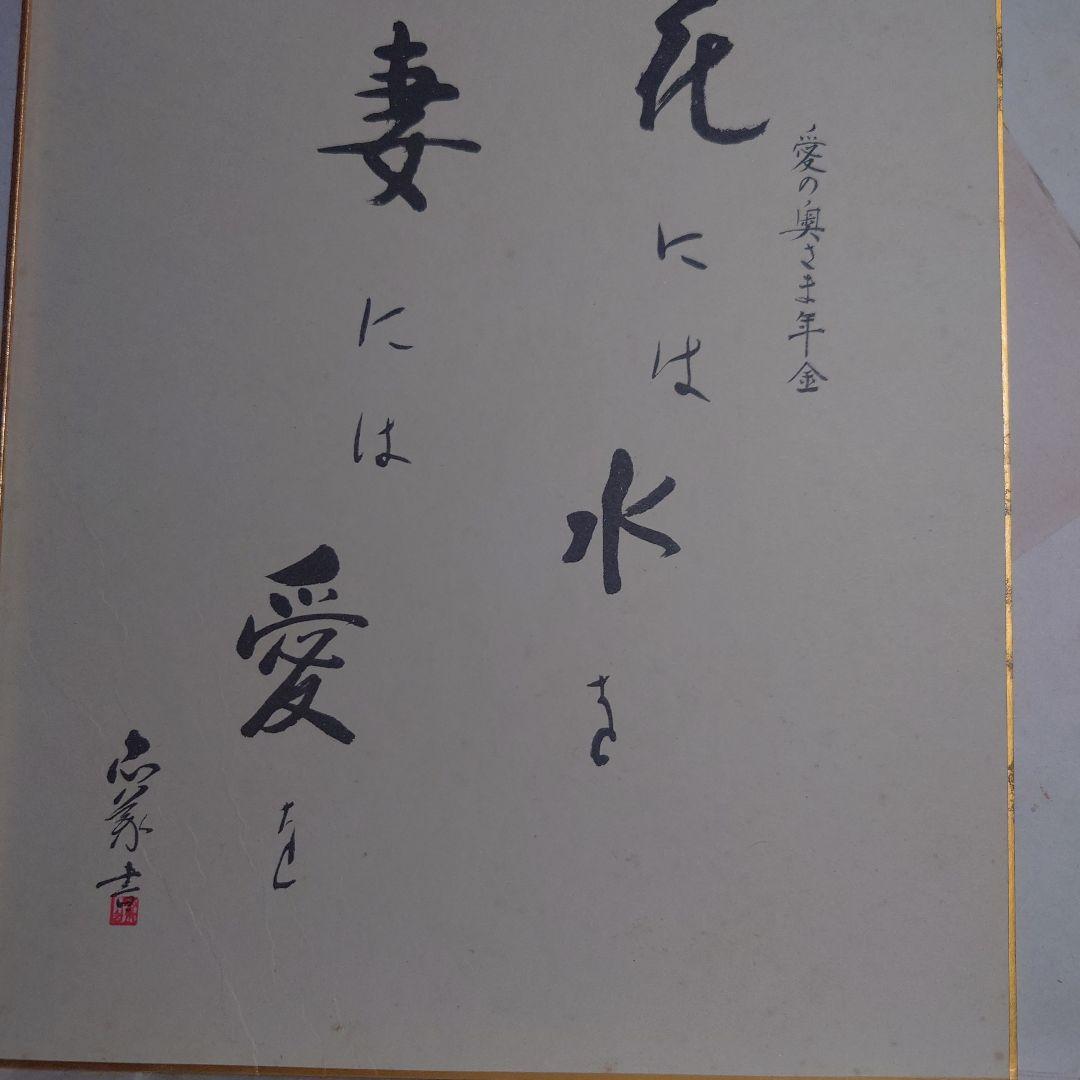 愛の奥さま年金
花には水を
妻には愛を